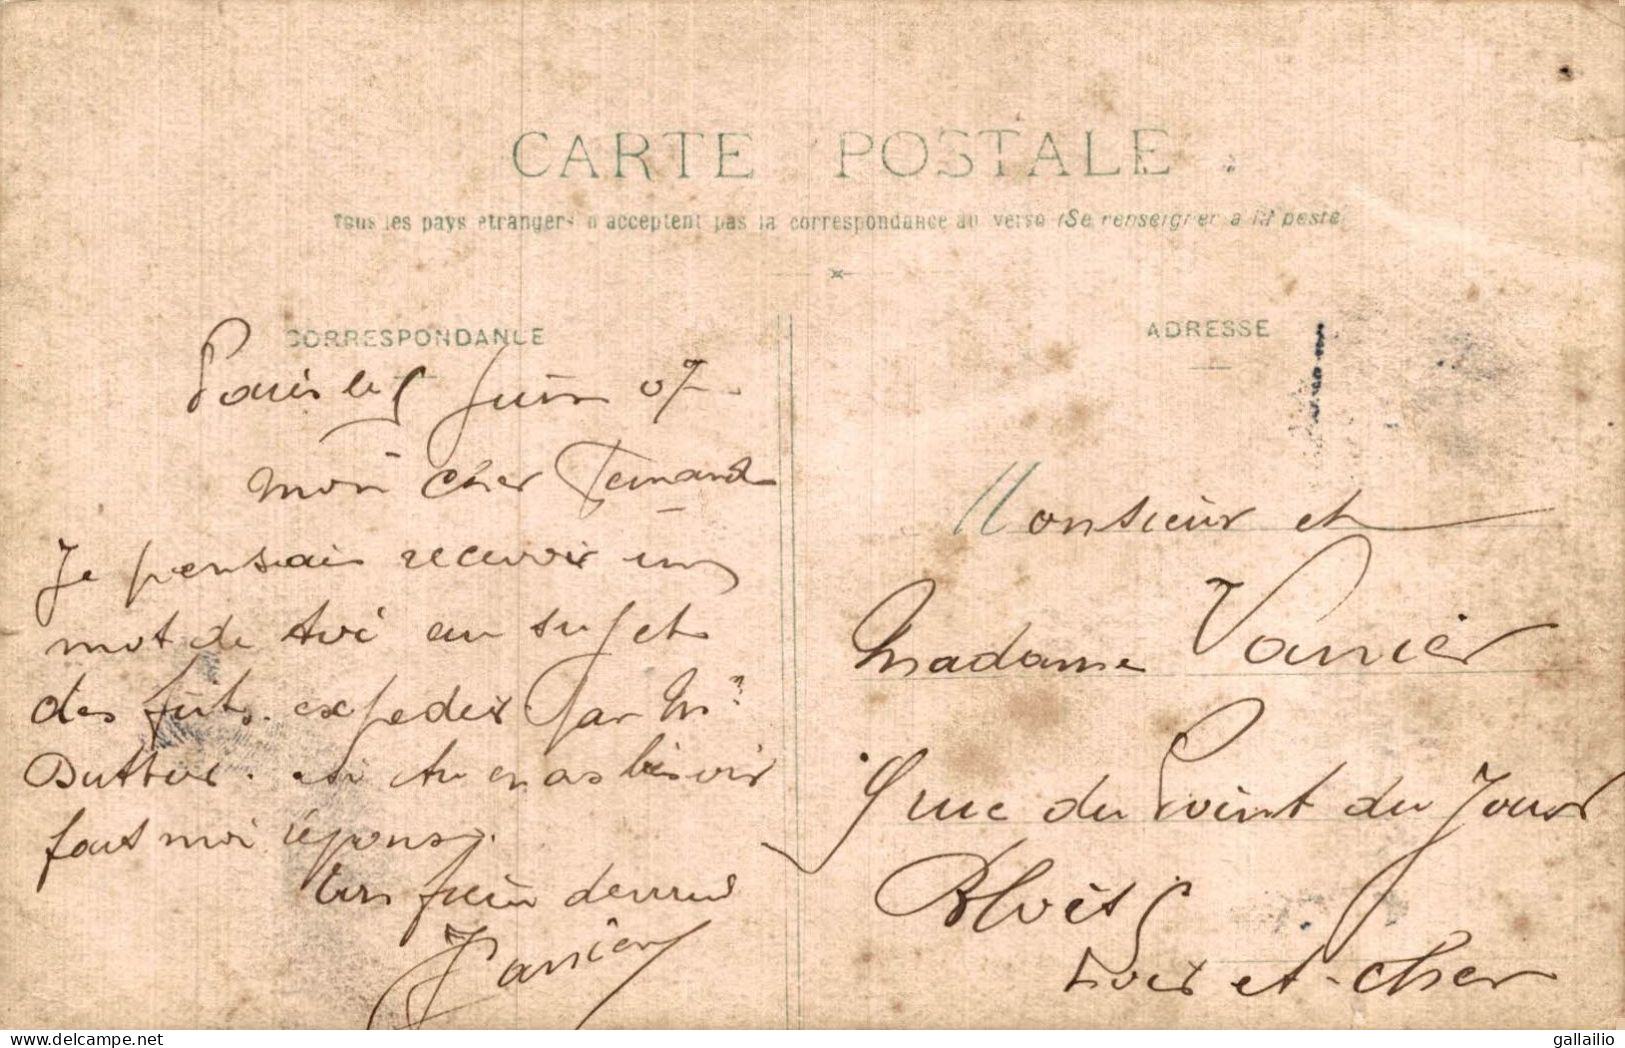 CARTE POSTALE
Tous les pays etrangers n'acceptent pas la correspondance au verso (Se renseigner a la poste)
CORRESPONDANCE
Paris le 5 Juin 07
mon cher Fernand
Je pensais recevoir un
mot de toi au sujet
des fûts. expedier par Mr
si tu en as
fait moi réponse.
ton
Vanier
ADRESSE
Monsieur et
Madame Vanier
9 rue du Point du Jour
Blois
Loir et-Cher
delcampe.net
gallailio